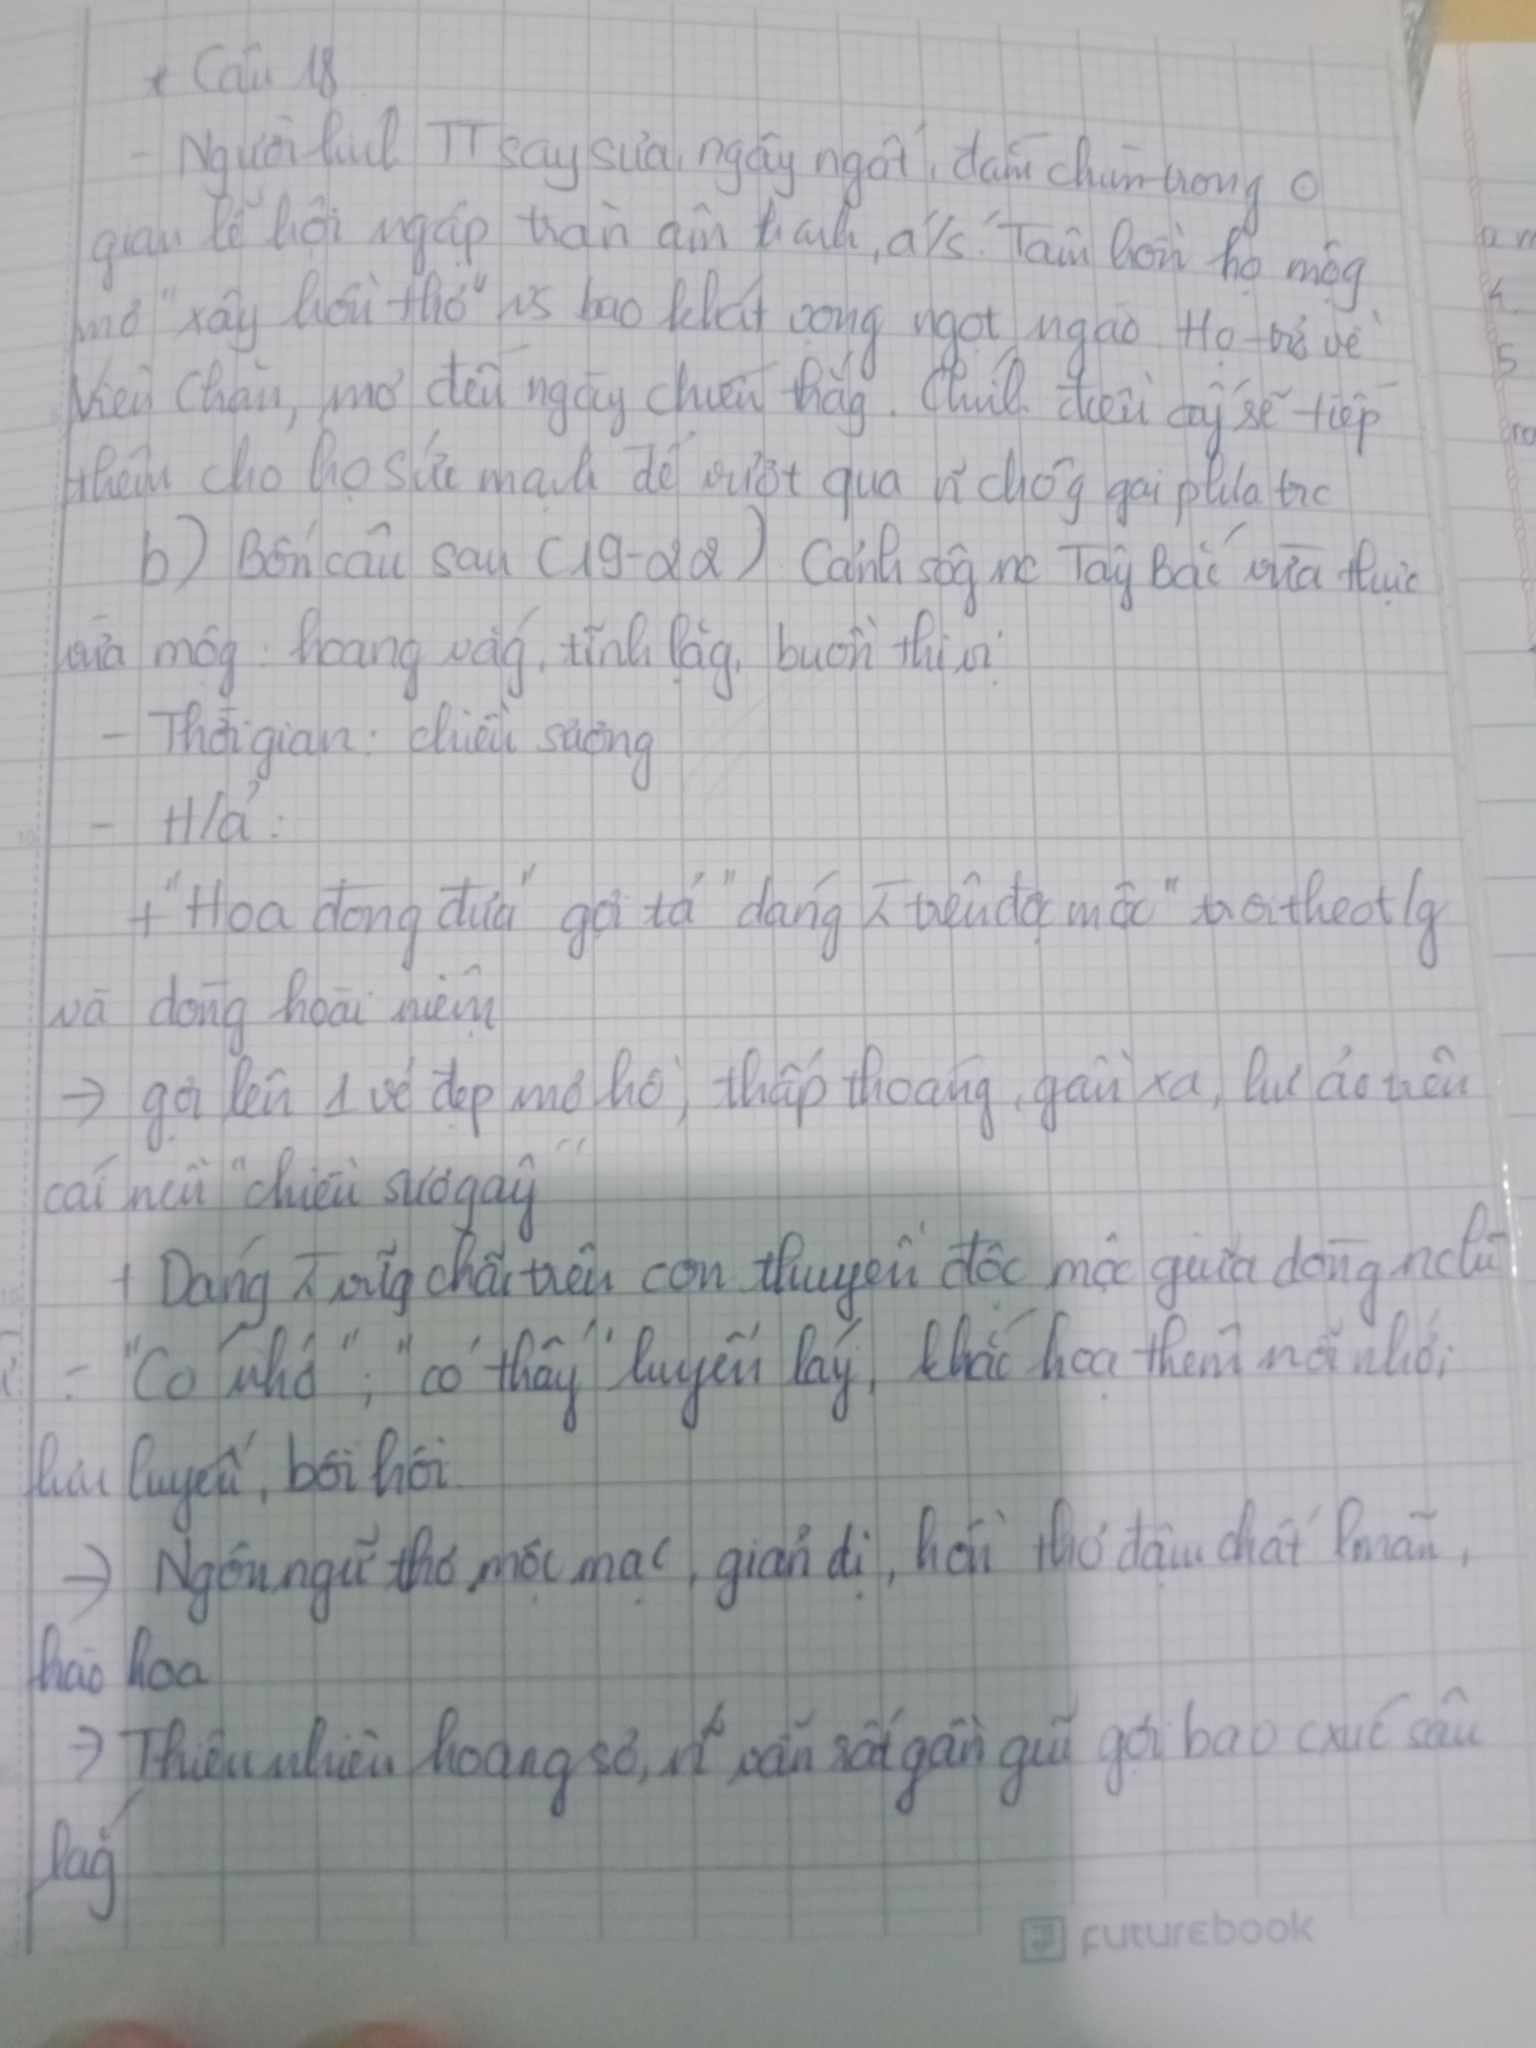 + Câu 18
- Người lính TT say sưa, ngây ngất, đắm chìm trong 0
gian lễ hội ngập tràn âm thanh, a/s. Tâm hồn họ mộg
mơ "xây hồn thơ" vs bao khát vọng ngọt ngào Họ trở về
Viên Chăn, mơ đến ngày chiến thắg. Chính điều ấy sẽ tiếp
thêm cho họ sức mạnh để vượt qua n~ chôg gai phía trc
b) Bốn câu sau (19-22) Cảnh sôg nc Tây Bắc vừa thực
vừa mộg: hoang vắg, tĩnh lặg, buồn thi vị
- Thời gian: chiều sương
- H/ả:
+ "Hoa đong đưa" gợi tả "dáng λ trên độc mộc" trôi theo t/g
và dòng hoài niệm
→ gợi lên 1 vẻ đẹp mơ hồ, thấp thoáng, gần xa, hư ảo trên
cái nền "chiều sươg ấy"
+ Dáng λ vữg chãi trên con thuyền độc mộc giữa dòng nc lũ
- "Có nhớ"; "có thấy" luyến láy, khắc hoạ thêm nỗi nhớ,
lưu luyến, bồi hồi.
→ Ngôn ngữ thơ mộc mạc, giản dị, hồn thơ đậm chất lmãn,
hào hoa
→ Thiên nhiên hoang sơ, vẫn rất gần gũi gợi bao cxúc sâu
lắg
FUTUREBOOK